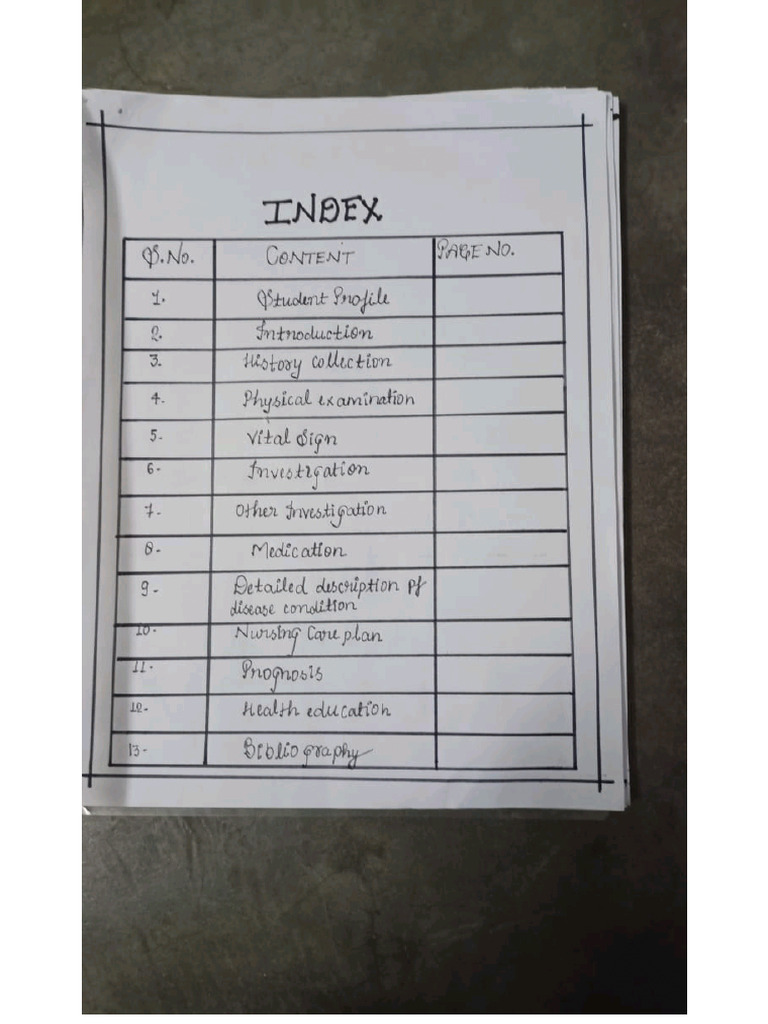 INDEX
S.No. CONTENT PAGE NO.
1. Student Profile
2. Introduction
3. History collection
4. Physical examination
5- Vital Sign
6- Investigation
7- Other Investigation
8- Medication
9- Detailed description of
disease condition
10- Nursing Care plan
11- Prognosis
12- Health education
13- Bibliography